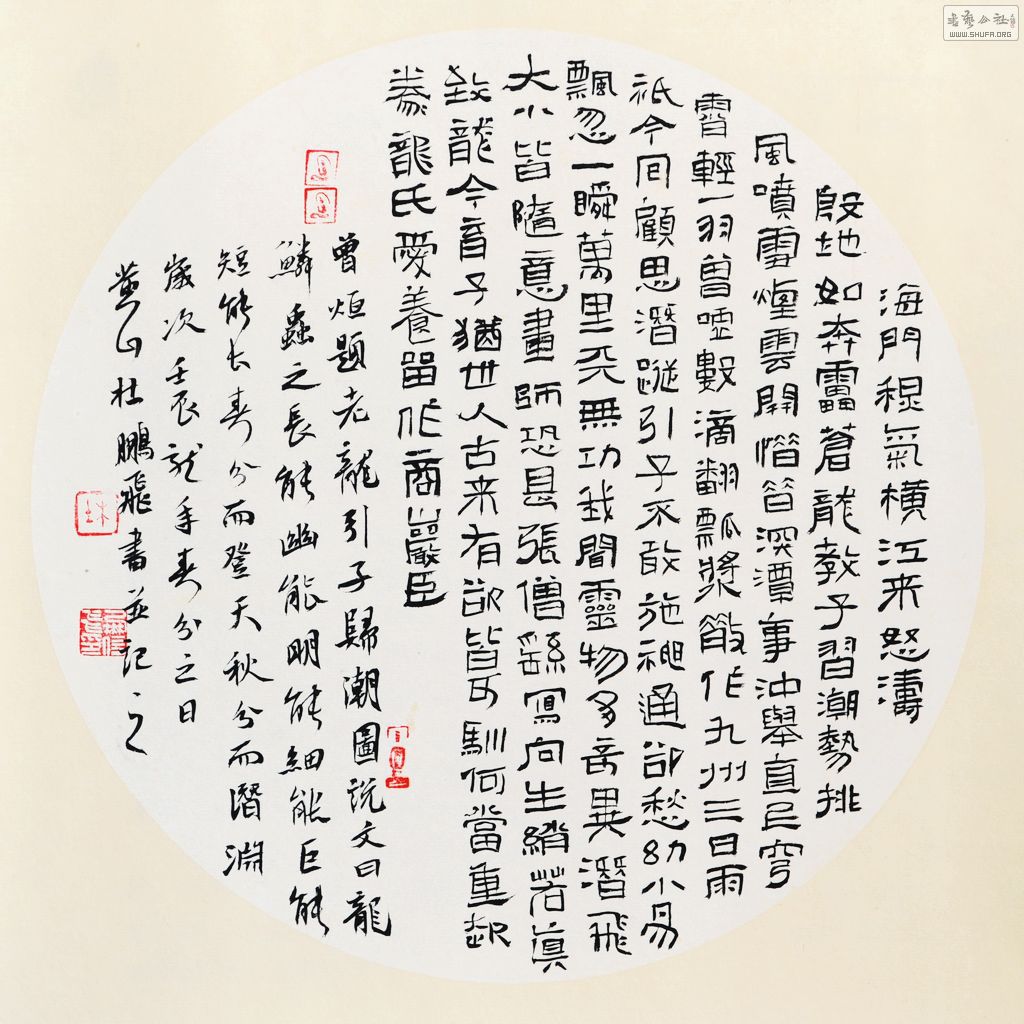 海門氣橫江来怒濤
殷地如奔靁蒼龍教子習潮勢排
風噴雪煙雲開憯昔深潭事沖舉直上穹
霄輕一羽曾噓數滴翻瓢漿散作九州三日雨
祇今回顧思潛蹤引子不敢施神通卻愁幼小易
飄忽一瞬萬里無功我聞靈物多奇異潛飛
大小皆隨意畫師恐是張僧繇寫向生綃若真
致龍今育子猶世人古来有欲皆可馴何當重起
豢龍氏愛養留作商巖臣
曾烜題老龍引子歸潮圖說文曰龍
鱗蟲之長能幽能明能細能巨能
短能長春分而登天秋分而潛淵
歲次壬辰龍年春分之日
燕山杜鵬飛書並記之
WWW.SHUFA.ORG